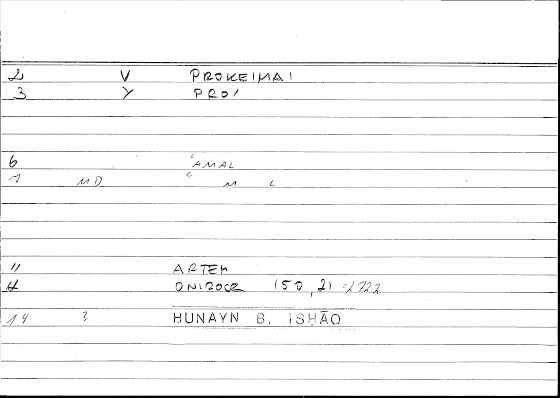 2 V PROKEIMAI
3 Y PRO/
6 ʿAMAL
7 MD ʿ M L
11 ARTEM
H ONIROCR 150,21 =2722
14 ? HUNAYN B. ISḤĀQ